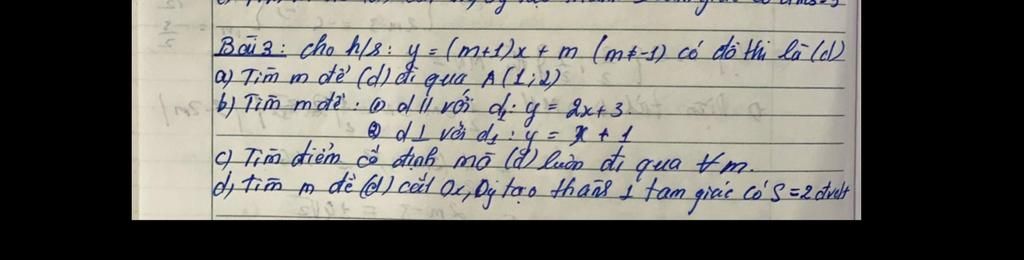 Bài 3: cho h/s: y = (m+1)x + m (m≠-1) có đồ thị là (d)
a) Tìm m để (d) đi qua A (1; 2)
b) Tìm m để: ① d // với d₁: y = 2x+3
② d ⊥ với d₁: y = x + 1
c) Tìm điểm cố định mà (d) luôn đi qua ∀ m.
d, tìm m để (d) cắt Ox, Oy tạo thành 1 tam giác có S = 2 đvdt